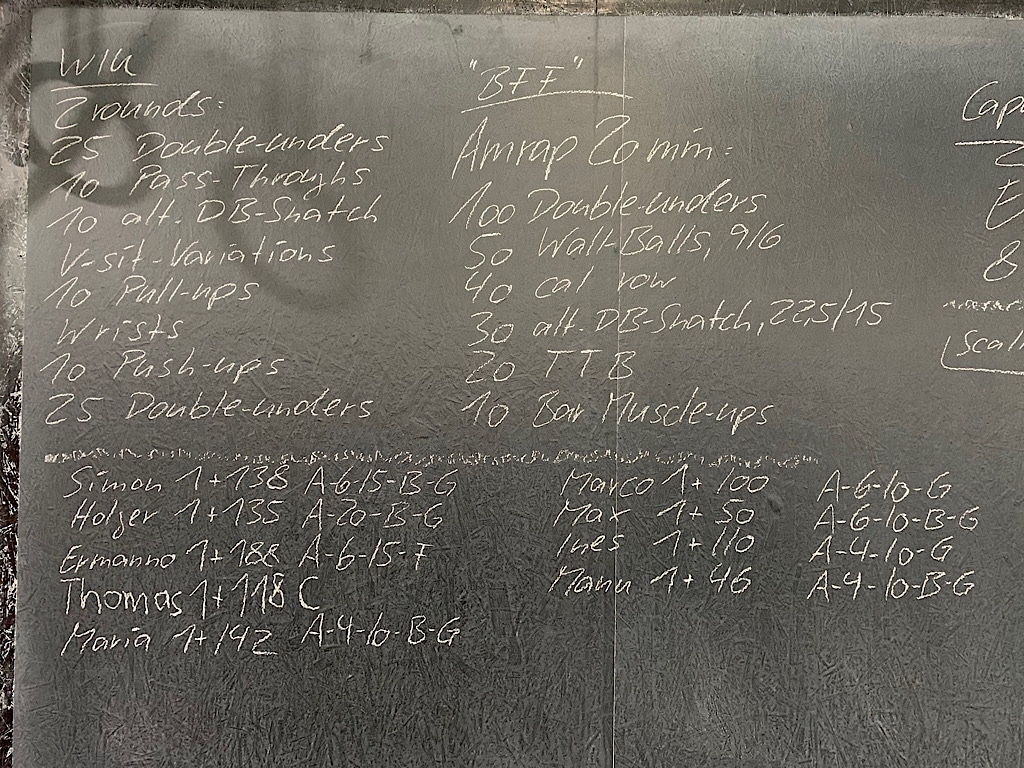 WU
2 rounds:
25 Double-unders
10 Pass-Throughs
10 alt. DB-Snatch
V-sit-Variations
10 Pull-ups
Wrists
10 Push-ups
25 Double-unders
"BFF"
Amrap 20 min:
100 Double-unders
50 Wall-Balls, 9/6
40 cal row
30 alt. DB-Snatch, 22,5/15
20 TTB
10 Bar Muscle-ups
Cap
2
E
8
Scali
Simon 1+138 A-6-15-B-G
Holger 1+135 A-20-B-G
Ermanno 1+188 A-6-15-F
Thomas 1+118 C
Maria 1+142 A-4-10-B-G
Marco 1+100 A-6-10-G
Max 1+50 A-6-10-B-G
Ines 1+110 A-4-10-G
Manu 1+46 A-4-10-B-G